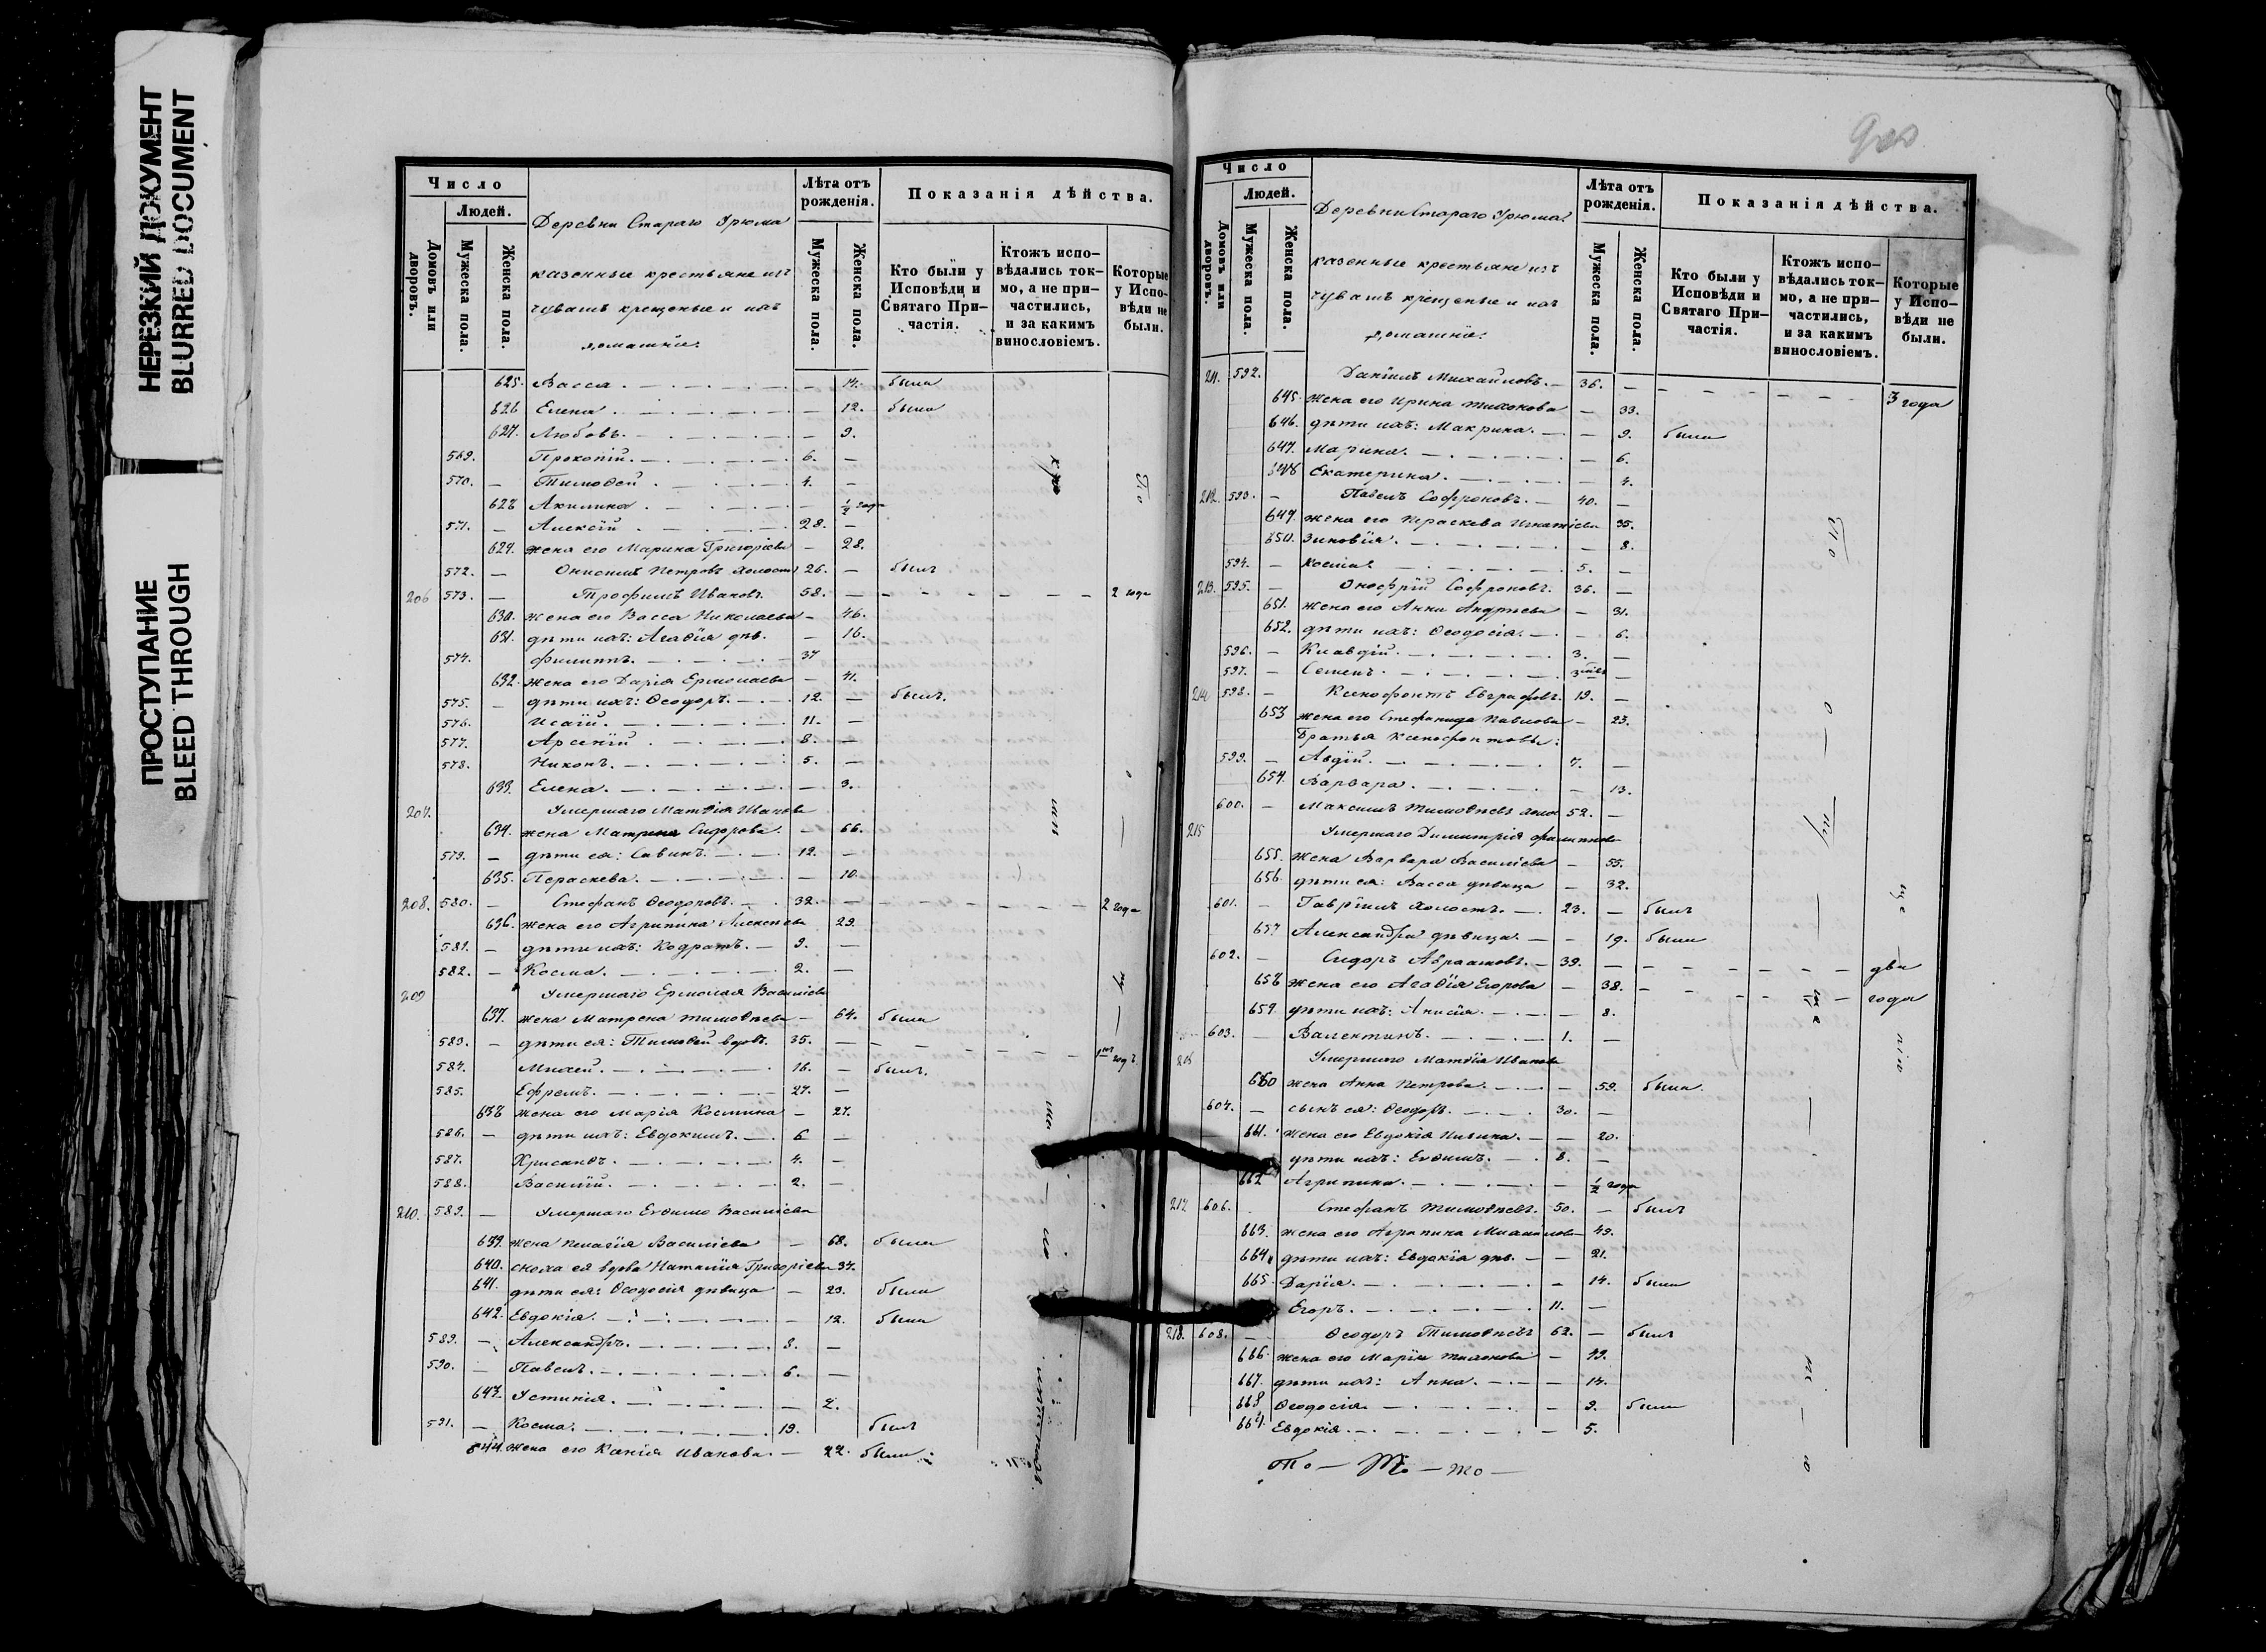 НЕРЕЗКИЙ ДОКУМЕНТ
BLURRED DOCUMENT
ПРОСТУПАНИЕ
BLEED THROUGH
Число
Людей.
Домовъ или дворовъ.
Мужеска пола.
Женска пола.
Деревни Стараго Урюма
казенные крестьяне изъ
чувашъ крещеные и ихъ
домашніе.
Лѣта отъ рожденія.
Мужеска пола.
Женска пола.
Показанія дѣйства.
Кто были у Исповѣди и Святаго Причастія.
Ктожъ исповѣдались токмо, а не причастились, и за какимъ винословіемъ.
Которые у Исповѣди не были.
625. Васса. — 14. была
626 Елена. — 12. была
627. Любовь. — 9.
569. Прокопій. 6. —
570. — Тимоѳей. 4. —
628 Акилина. — ½ года
571. — Алексій. 28. —
629. жена его Марина Григоріева — 28.
572. — Онисимъ Петровъ холостъ 26. — былъ
206 573. — Трофимъ Ивановъ. 58. — 2 года
630. жена его Васса Николаева — 46.
631. дѣти ихъ: Агаѳія дѣв. — 16.
574. Филиппъ. 37
632. жена его Дарія Ермолаева — 41.
575. — дѣти ихъ: Ѳеодоръ. 12. — былъ.
576. Исаій. 11. —
577. Арсеній. 8. —
578. Никонъ. 5. —
633. Елена. — 3.
207. Умершаго Матѳія Иванова
634. жена Матрена Сидорова. — 66.
579. — дѣти ея: Савинъ. 12. —
635. Параскева. — 10.
208. 580. — Стефанъ Ѳеодоровъ. 32. — 2 года
636. жена его Агрипина Алексѣева 29.
581. — дѣти ихъ: Кодратъ. 9. —
582. — Косма. 2. —
209 Умершаго Ермолая Василіева
637. жена Матрена Тимоѳеева — 64. была
583. — дѣти ея: Тимоѳей вдовъ. 35. — 1 годъ.
584. Михей. 16. — былъ.
585. Ефремъ. 27. —
638 жена его Марія Космина — 27.
586. — дѣти ихъ: Евдокимъ. 6 —
587. Хрисанѳъ. 4. —
588. Василій. 2. —
210. 589. — Умершаго Евѳимо Василіева
639. жена Пелагія Василіева — 68. была
640. сноха ея вдова Наталія Григоріева 37.
641. дѣти ея: Ѳеодосія дѣвица — 23. была
642. Евдокія. — 12. была
589. — Александръ. 8. —
590. — Павелъ. 6. —
643. Устинія. — 2.
591. — Косма. 19. былъ
644. жена его Ксенія Иванова. — 22. была.
Число
Людей.
Домовъ или дворовъ.
Мужеска пола.
Женска пола.
Деревни Стараго Урюма
казенные крестьяне изъ
чувашъ крещеные и ихъ
домашніе.
Лѣта отъ рожденія.
Мужеска пола.
Женска пола.
Показанія дѣйства.
Кто были у Исповѣди и Святаго Причастія.
Ктожъ исповѣдались токмо, а не причастились, и за какимъ винословіемъ.
Которые у Исповѣди не были.
211. 592. Даніилъ Михайловъ. 36. — 3 года
645. жена его Ирина Тихонова — 33.
646. дѣти ихъ: Макрина. — 9. была
647. Марина. — 6.
648 Екатерина. — 4.
212. 593. — Павелъ Софроновъ. 40. —
649. жена его Параскева Игнатіева 35.
650. Зиновія. — 8.
594. — Косма. 5. —
213. 595. — Онофрій Софроновъ. 36. —
651. жена его Анна Андреева — 31.
652. дѣти ихъ: Ѳеодосія. — 6.
596. — Клавдій. 3. —
597. — Семенъ. —
214 598. — Ксенофонтъ Евграфовъ. 19. —
653 жена его Стефанида Павлова — 23.
Братья Ксенофонтовы:
599. — Авдій. 7. —
654. Варвара. — 13.
600. — Максимъ Тимоѳеевъ холос 52. —
215 Умершаго Димитрія Филиппова
655. жена Варвара Василіева — 55.
656. дѣти ея: Васса дѣвица — 32.
601. — Гавріилъ холостъ. 23. — былъ
657 Александра дѣвица. — 19. была
602. — Сидоръ Авраамовъ. 39. — два
658 жена его Агаѳія Егорова — 38. — года
659. дѣти ихъ: Анисія. — 8.
603. — Валентинъ. 1. —
216 Умершаго Матѳія Иванова
660 жена Анна Петрова. — 59. была.
604. — сынъ ея: Ѳеодоръ. 30. —
661. жена его Евдокія — 20.
дѣти ихъ: Евѳимъ. 8. —
662 Агрипина. — ½ года
217 606. Стефанъ Тимоѳеевъ. 50. — былъ
663. жена его Агрипина Михайлова — 49.
664. дѣти ихъ: Евдокія дѣв. — 21.
665. Дарія. — 14. была
Егоръ. 11. —
218. 608. — Ѳеодоръ Тимоѳеевъ 62. — былъ
666. жена его Марія Тихонова — 49.
667. дѣти ихъ: Анна. — 14.
668 Ѳеодосія. — 9. была
669. Евдокія. — 5.
То — То — то —